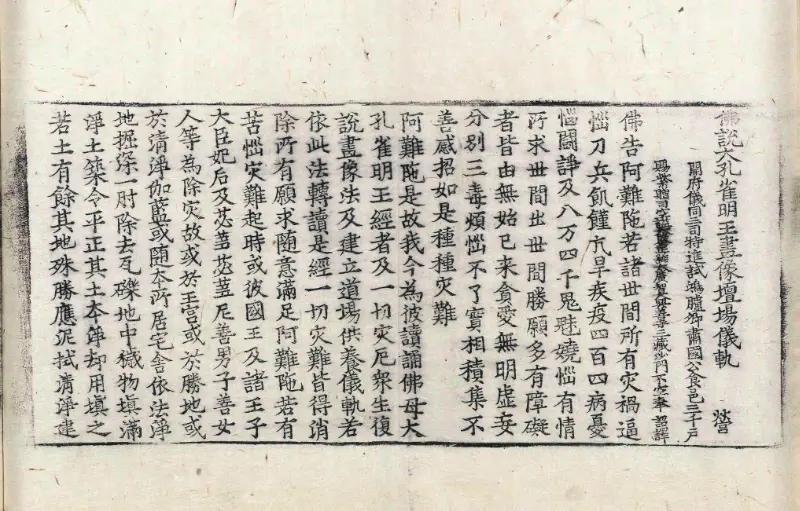 佛說大孔雀明王畫像壇場儀軌 營
開府儀同三司特進試鴻臚卿肅國公食邑三千戶
賜紫贈司空三藏沙門不空奉 詔譯
佛告阿難陁若諸世間所有灾禍逼
惱刀兵飢饉亢旱疾疫四百四病憂
惱鬪諍及八万四千鬼魅嬈惱有情
所求世間出世間勝願多有障礙
者皆由無始已来貪愛無明虛妄
分別三毒煩惱不了實相積集不
善感招如是種種灾難
阿難陁是故我今為彼讀誦佛母大
孔雀明王經者及一切灾厄衆生復
說畫像法及建立道場供養儀軌若
依此法轉讀是經一切灾難皆得消
除所有願求随意滿足阿難陁若有
苦惱灾難起時或彼國王及諸王子
大臣妃后及苾蒭苾蒭尼善男子善女
人等為除灾故或於王宮或於勝地或
於清淨伽藍或随本所居宅舍依法淨
地掘深一肘除去瓦礫地中穢物填滿
淨土築令平正其土本淨却用填之
若土有餘其地殊勝應泥拭清淨建